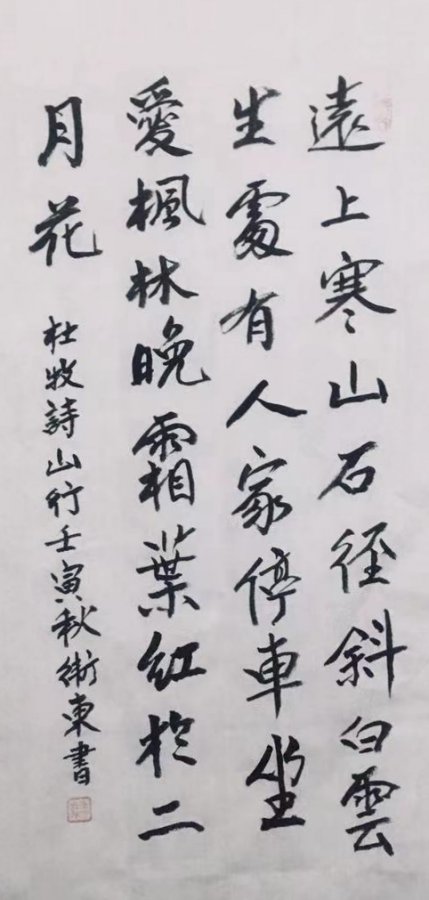 遠上寒山石徑斜白雲
生處有人家停車坐
愛楓林晚霜葉紅於二
月花
杜牧詩山行壬寅秋衛東書